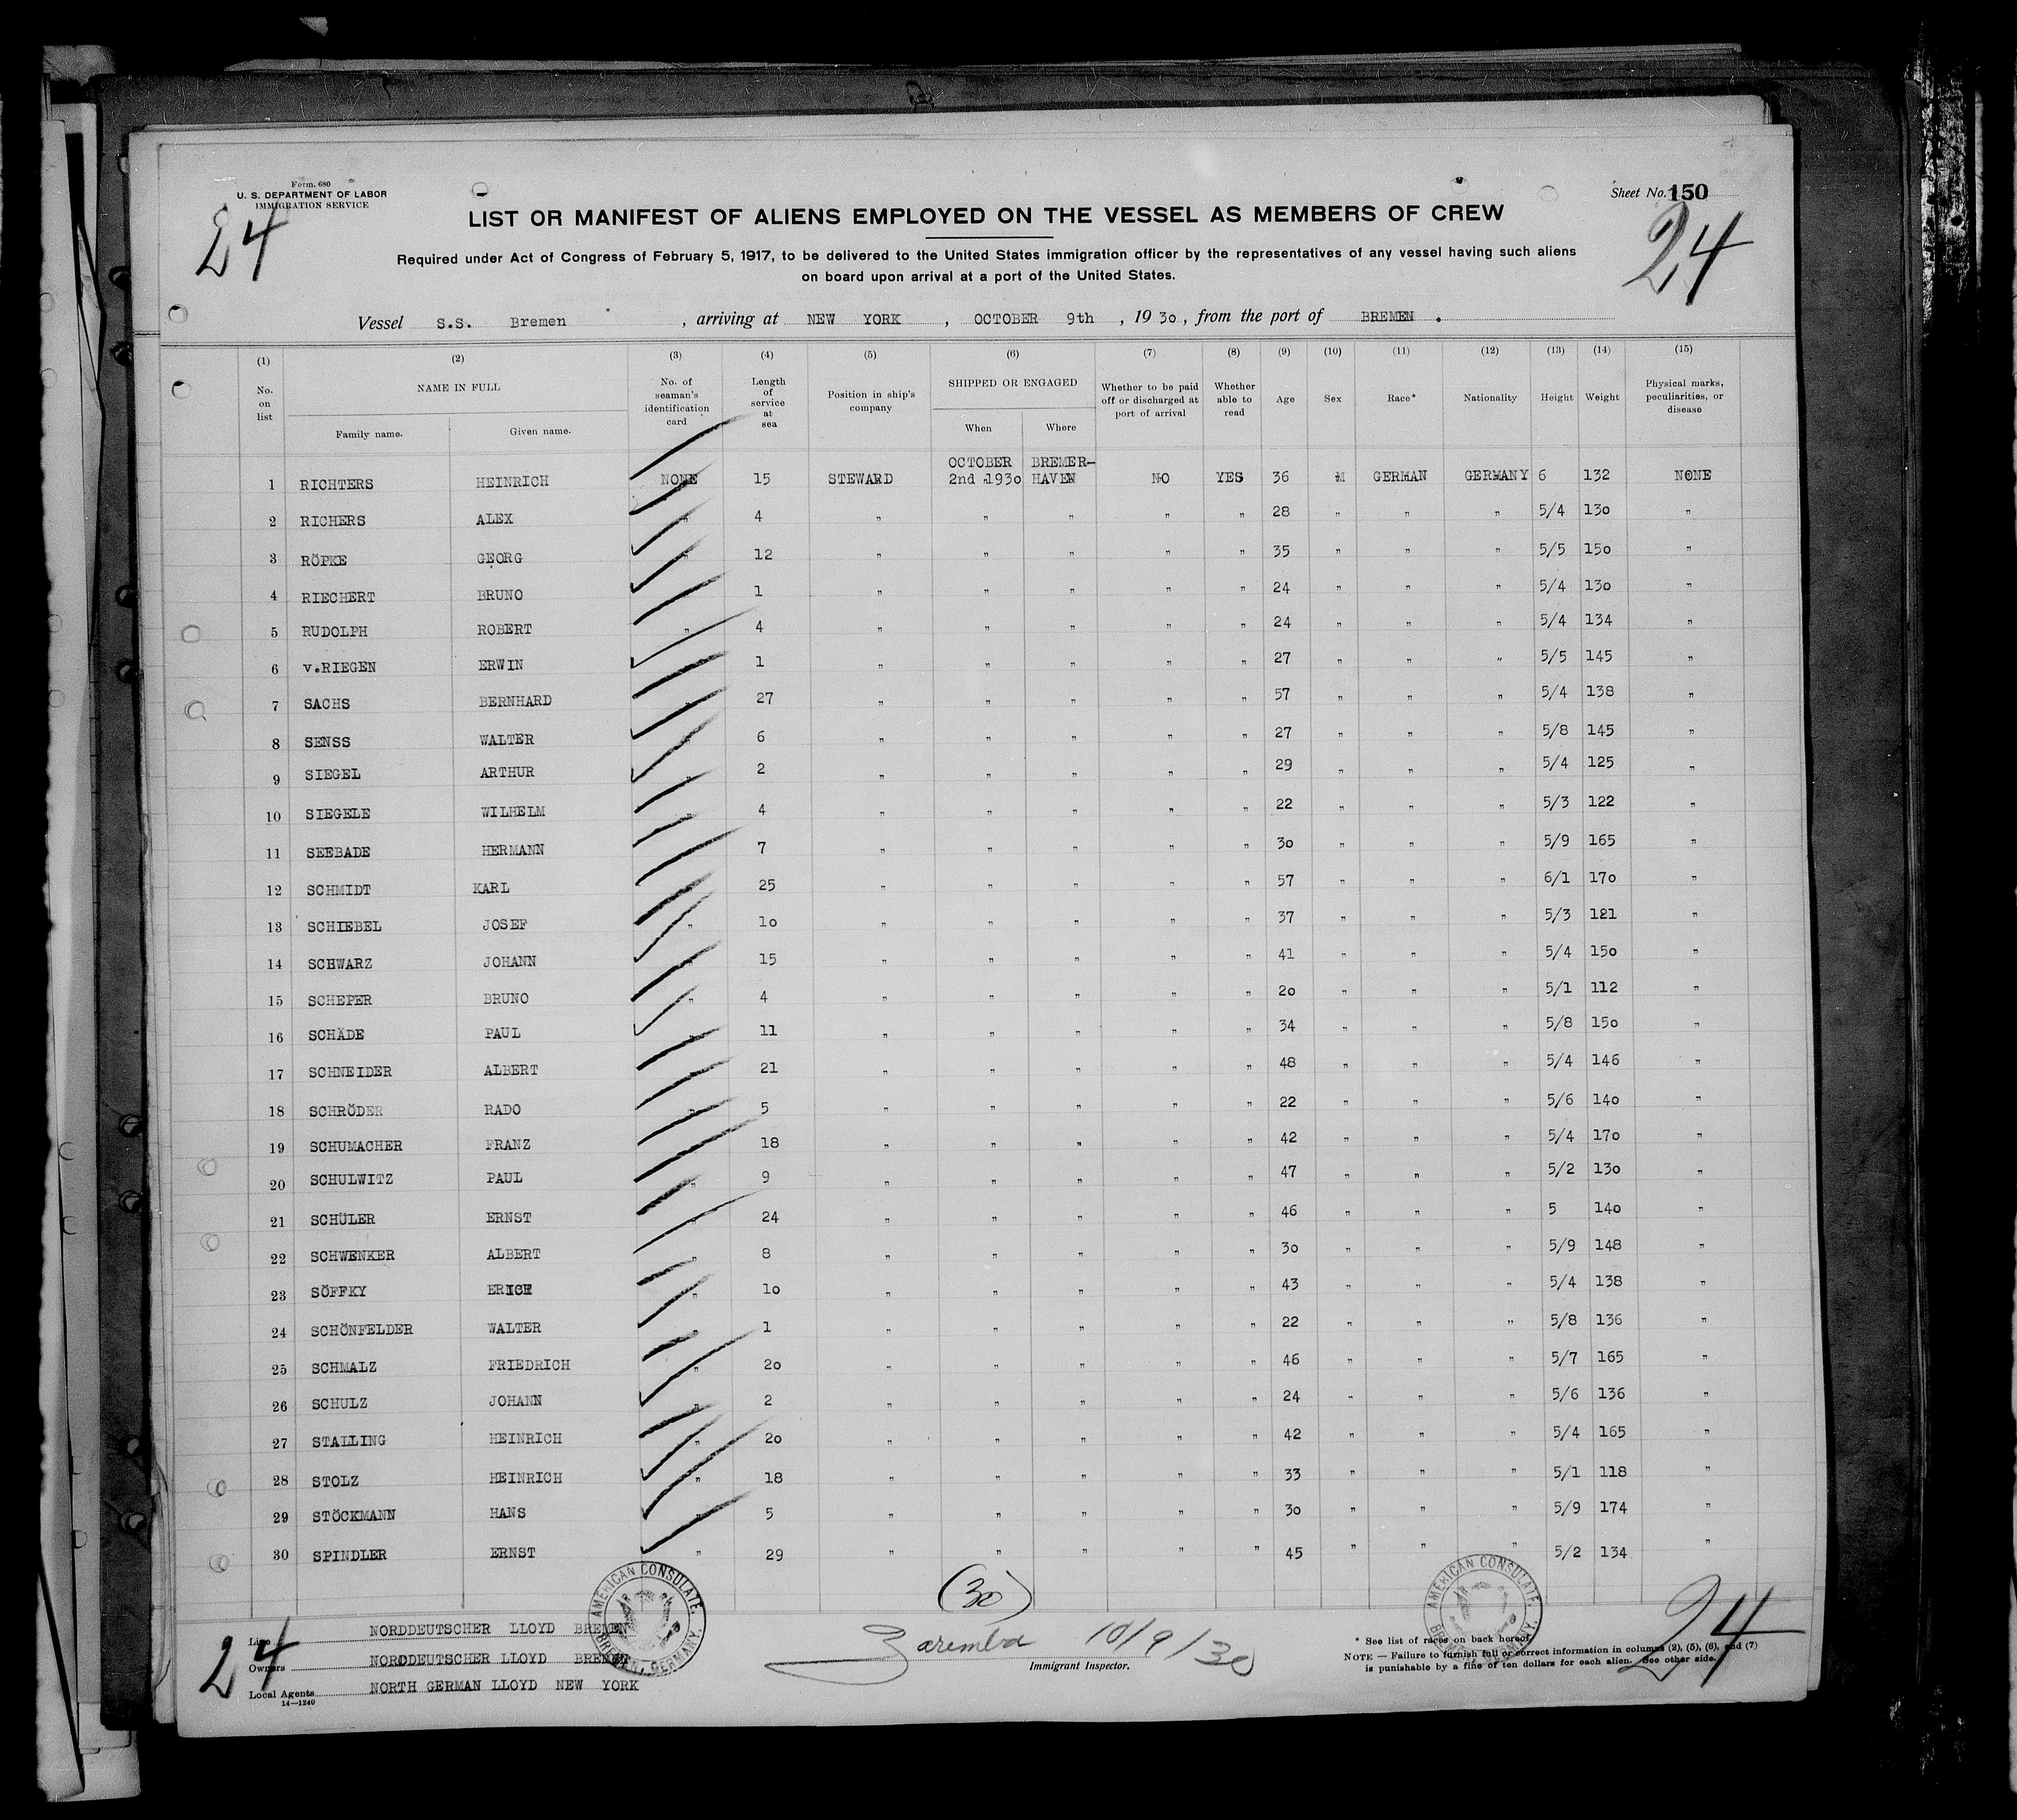 Form. 680
U. S. DEPARTMENT OF LABOR
IMMIGRATION SERVICE
24
Sheet No. 150
24
LIST OR MANIFEST OF ALIENS EMPLOYED ON THE VESSEL AS MEMBERS OF CREW
Required under Act of Congress of February 5, 1917, to be delivered to the United States immigration officer by the representatives of any vessel having such aliens
on board upon arrival at a port of the United States.
Vessel S.S. Bremen , arriving at NEW YORK , OCTOBER 9th , 1930 , from the port of BREMEN .
(1) (2) (3) (4) (5) (6) (7) (8) (9) (10) (11) (12) (13) (14) (15)
No. on list NAME IN FULL Family name. Given name. No. of seaman's identification card Length of service at sea Position in ship's company SHIPPED OR ENGAGED When Where Whether to be paid off or discharged at port of arrival Whether able to read Age Sex Race* Nationality Height Weight Physical marks, peculiarities, or disease
1 RICHTERS HEINRICH NONE 15 STEWARD OCTOBER 2nd 1930 BREMER-HAVEN NO YES 36 M GERMAN GERMANY 6 132 NONE
2 RICHERS ALEX " 4 " " " " " 28 " " " 5/4 130 "
3 RÖPKE GEORG " 12 " " " " " 35 " " " 5/5 150 "
4 RIECHERT BRUNO 1 " " " " " 24 " " " 5/4 130 "
5 RUDOLPH ROBERT " 4 " " " " " 24 " " " 5/4 134 "
6 v.RIEGEN ERWIN 1 " " " " " 27 " " " 5/5 145 "
7 SACHS BERNHARD " 27 " " " " " 57 " " " 5/4 138 "
8 SENSS WALTER 6 " " " " " 27 " " " 5/8 145 "
9 SIEGEL ARTHUR " 2 " " " " " 29 " " " 5/4 125 "
10 SIEGELE WILHELM " 4 " " " " " 22 " " " 5/3 122 "
11 SEEBADE HERMANN 7 " " " " " 30 " " " 5/9 165 "
12 SCHMIDT KARL 25 " " " " " 57 " " " 6/1 170 "
13 SCHIEBEL JOSEF " 10 " " " " " 37 " " " 5/3 121 "
14 SCHWARZ JOHANN 15 " " " " " 41 " " " 5/4 150 "
15 SCHEPER BRUNO " 4 " " " " " 20 " " " 5/1 112 "
16 SCHÄDE PAUL " 11 " " " " " 34 " " " 5/8 150 "
17 SCHNEIDER ALBERT 21 " " " " " 48 " " " 5/4 146 "
18 SCHRÖDER RADO " 5 " " " " " 22 " " " 5/6 140 "
19 SCHUMACHER FRANZ 18 " " " " " 42 " " " 5/4 170 "
20 SCHULWITZ PAUL " 9 " " " " " 47 " " " 5/2 130 "
21 SCHÜLER ERNST " 24 " " " " " 46 " " " 5 140 "
22 SCHWENKER ALBERT " 8 " " " " " 30 " " " 5/9 148 "
23 SÖFFKY ERICH " 10 " " " " " 43 " " " 5/4 138 "
24 SCHÖNFELDER WALTER 1 " " " " " 22 " " " 5/8 136 "
25 SCHMALZ FRIEDRICH " 20 " " " " " 46 " " " 5/7 165 "
26 SCHULZ JOHANN " 2 " " " " " 24 " " " 5/6 136 "
27 STALLING HEINRICH " 20 " " " " " 42 " " " 5/4 165 "
28 STOLZ HEINRICH " 18 " " " " " 33 " " " 5/1 118 "
29 STÖCKMANN HANS " 5 " " " " " 30 " " " 5/9 174 "
30 SPINDLER ERNST " 29 " " " " " 45 " " " 5/2 134 "
AMERICAN CONSULATE, BREMEN, GERMANY.
AMERICAN CONSULATE, BREMEN, GERMANY.
(30)
24
24
Line NORDDEUTSCHER LLOYD BREMEN
Owners NORDDEUTSCHER LLOYD BREMEN
Local Agents NORTH GERMAN LLOYD NEW YORK
14—1240
Zaremba 10/9/30
Immigrant Inspector.
* See list of races on back hereof.
NOTE — Failure to furnish full or correct information in columns (2), (5), (6), and (7)
is punishable by a fine of ten dollars for each alien. See other side.